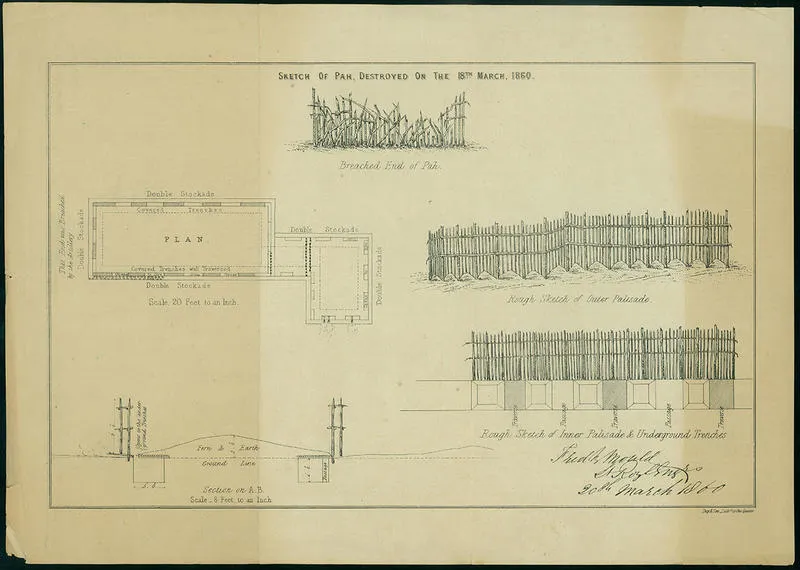 SKETCH OF PAH, DESTROYED ON THE 18TH MARCH, 1860.
Breached End of Pah.
Double Stockade
Covered Trenches
This End was Breached
by the Artillery
Double Stockade
PLAN.
Covered Trenches well Traversed
Double Stockade
Scale, 20 Feet to an Inch.
Double Stockade
Double Stockade
Rough Sketch of Outer Palisade.
Traverse
Passage
Traverse
Passage
Traverse
Rough Sketch of Inner Palisade & Underground Trenches
Fern & Earth
Ground Line
Passage
Section on A.B.
Scale 8 Feet to an Inch
Fredk. Mould
20th March 1860